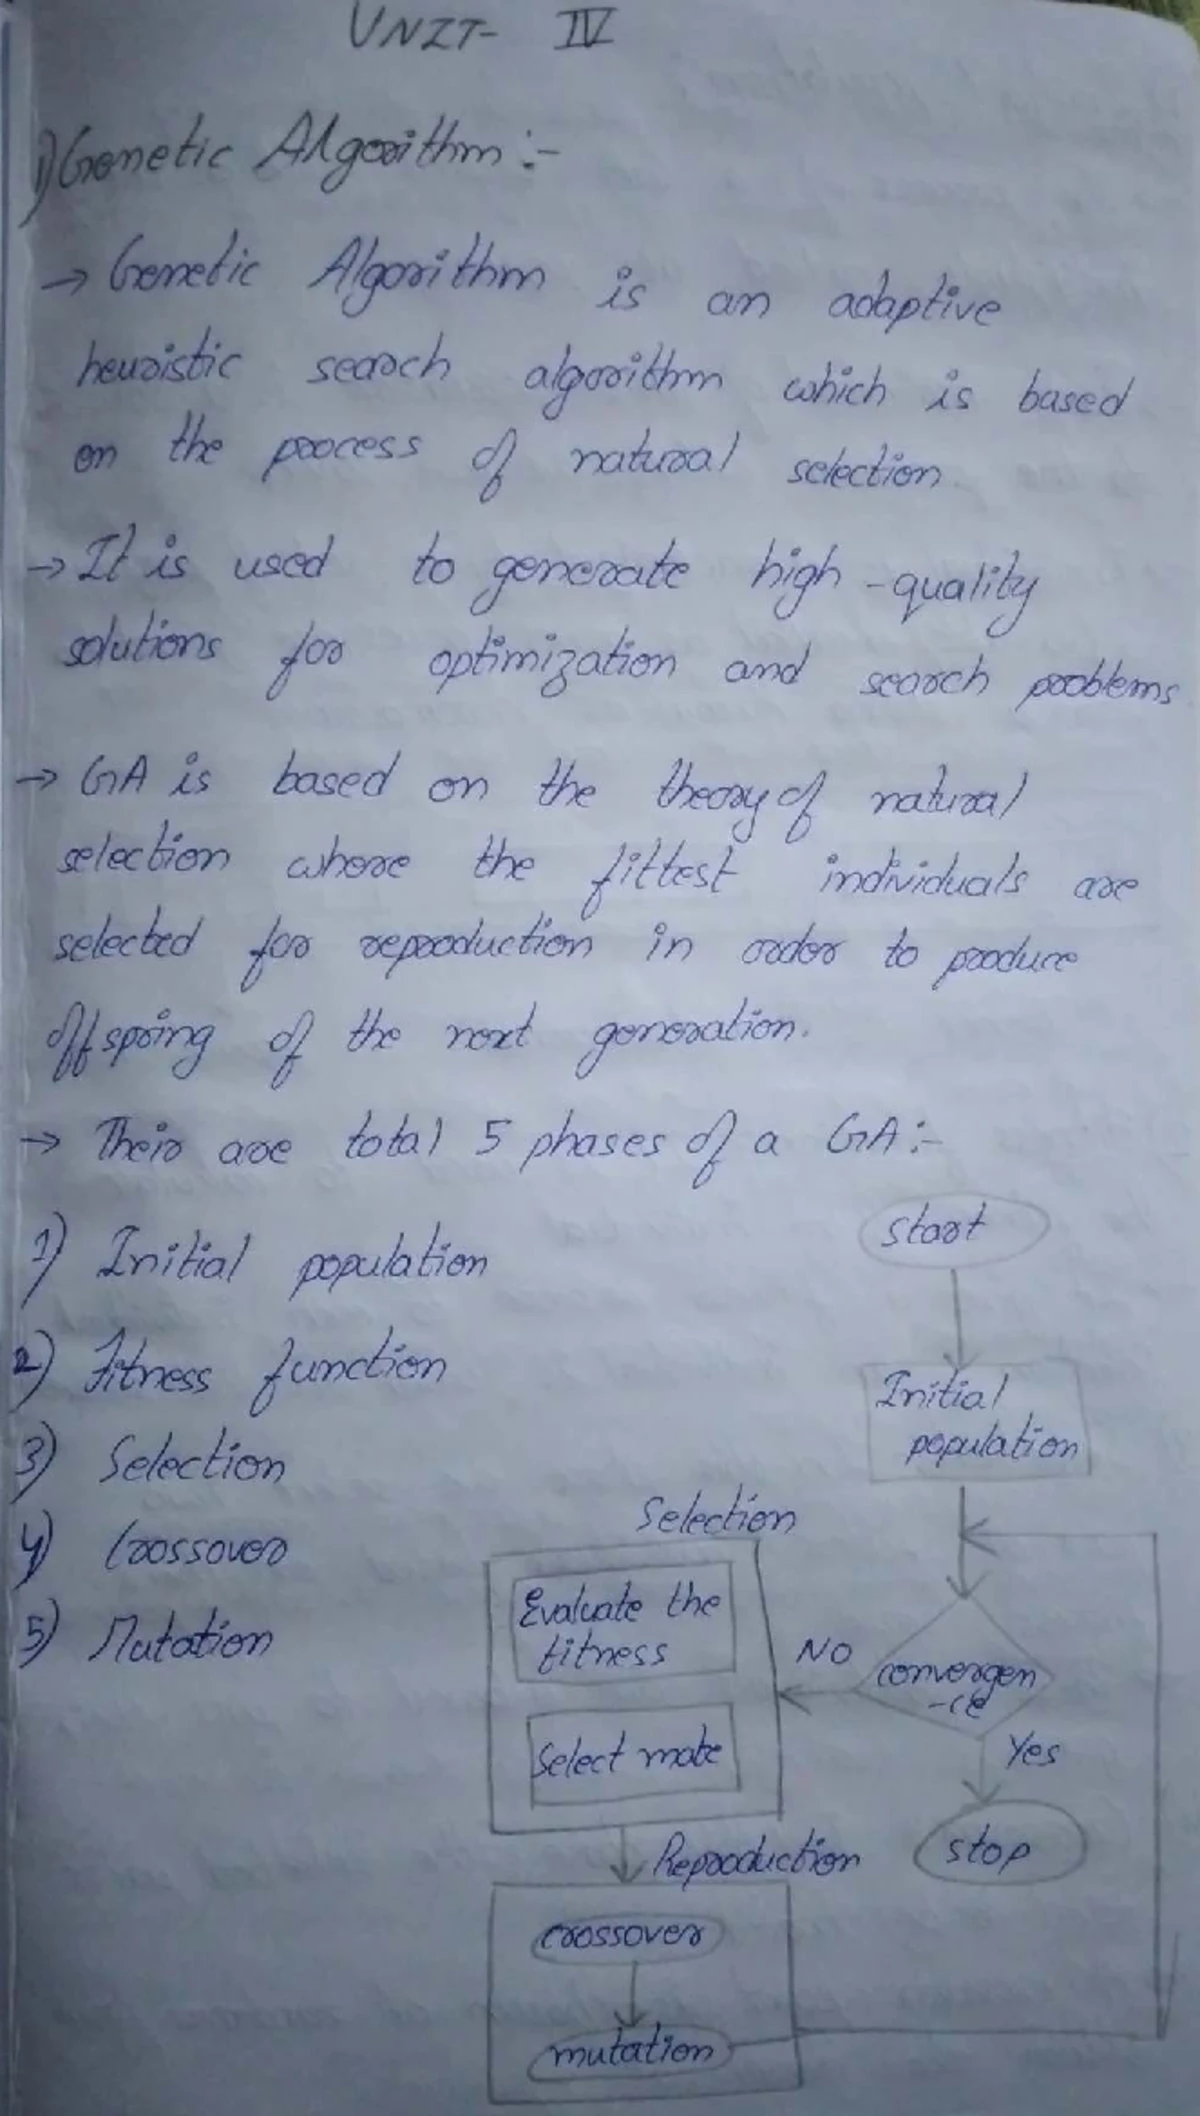 UNIT- IV
1) Genetic Algorithm :-
→ Genetic Algorithm is an adaptive
heuristic search algorithm which is based
on the process of natural selection.
→ It is used to generate high-quality
solutions for optimization and search problems
→ GA is based on the theory of natural
selection where the fittest individuals are
selected for reproduction in order to produce
offspring of the next generation.
→ Their are total 5 phases of a GA :-
1) Initial population
2) Fitness function
3) Selection
4) Crossover
5) Mutation
Start
Initial
population
Selection
Evaluate the
fitness
Select mate
NO
convergen
-ce
Yes
stop
Reproduction
crossover
mutation